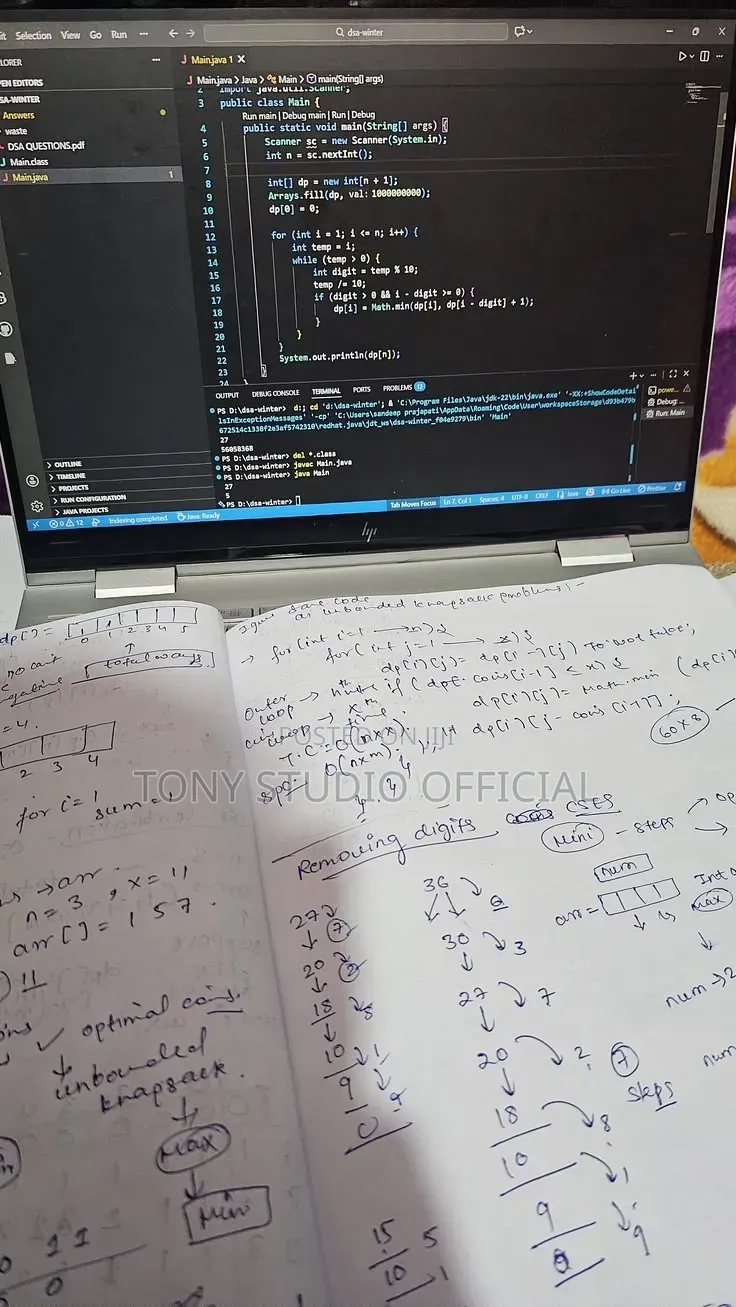 Selection View Go Run ... dsa-winter
Main.java 1
Main.java > Java > Main > main(String[] args)
OPEN EDITORS
SA-WINTER
Answers
waste
DSA QUESTIONS.pdf
Main.class
Main.java 1
2 import java.util.Scanner;
3 public class Main {
Run main | Debug main | Run | Debug
4 public static void main(String[] args) {
5 Scanner sc = new Scanner(System.in);
6 int n = sc.nextInt();
7
8 int[] dp = new int[n + 1];
9 Arrays.fill(dp, val: 1000000000);
10 dp[0] = 0;
11
12 for (int i = 1; i <= n; i++) {
13 int temp = i;
14 while (temp > 0) {
15 int digit = temp % 10;
16 temp /= 10;
17 if (digit > 0 && i - digit >= 0) {
18 dp[i] = Math.min(dp[i], dp[i - digit] + 1);
19 }
20 }
21 }
22 System.out.println(dp[n]);
23 }
24
OUTPUT DEBUG CONSOLE TERMINAL PORTS PROBLEMS 12
PS D:\dsa-winter> d:; cd 'd:\dsa-winter'; & 'C:\Program Files\Java\jdk-22\bin\java.exe' '-XX:+ShowCodeDetai
lsInExceptionMessages' '-cp' 'C:\Users\sandeep prajapati\AppData\Roaming\Code\User\workspaceStorage\d93b479b
672514c1338f2e3af5742310\redhat.java\jdt_ws\dsa-winter_f04e9279\bin' 'Main'
27
56058368
PS D:\dsa-winter> del *.class
PS D:\dsa-winter> javac Main.java
PS D:\dsa-winter> java Main
27
5
PS D:\dsa-winter>
powe...
Debug: ...
Run: Main
OUTLINE
TIMELINE
PROJECTS
RUN CONFIGURATION
JAVA PROJECTS
0 12 Indexing completed. Java: Ready Tab Moves Focus Ln 7, Col 1 Spaces: 4 UTF-8 CRLF Java Go Live Prettier
hp
dp[] =
0 1 2 3 4 5
total ways
= 4.
2 3 4
for i = 1
sum =
→ arr.
n = 3, x = 11
arr[] = 1 5 7.
11
optimal coins.
unbounded
knapsack.
Max
Mini
same code
as unbounded knapsack problem
→ for(int i=1 → n) {
for(int j=1 → x) {
dp[i][j] = dp[i-1][j] To Not take;
if (coins[i-1] ≤ x) {
dp[i][j] = Math.min (dp[i]
dp[i][j - coins[i-1]].
Outer loop → nth
loop → xth time.
T.C = O(n×x)
spc: O(n×m).
60×8
POSTED ON JIJI
TONY STUDIO OFFICIAL
Removing digits CSES
Mini - steps
num
arr =
Max
num → 2
num
27
7
20
2
18
8
10
1
9
9
0
36
6
30
3
27
7
20
2
18
8
10
1
9
9
0
7
steps
15
5
10
1